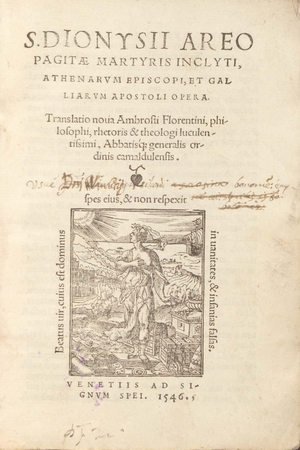 S. DIONYSII AREO
PAGITÆ MARTYRIS INCLYTI,
ATHENARVM EPISCOPI, ET GAL-
LIARVM APOSTOLI OPERA.
Translatio noua Ambrosii Florentini, phi-
losophi, rhetoris & theologi luculen-
tissimi, Abbatisq; generalis or-
dinis camaldulensis.
spes eius, & non respexit
Beatus uir, cuius est dominus
in uanitates, & insanias falsas.
VENETIIS AD SI-
GNVM SPEI. 1546.